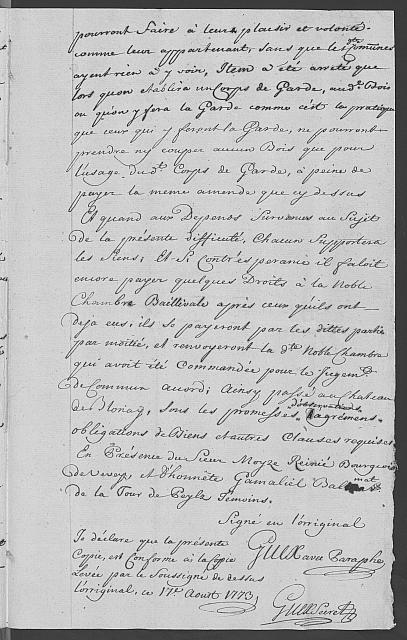 pourront faire à leur plaisir et volonté
comme leur appartenant, sans que les dtes Communes
ayent rien à y voir, Item a été arreté que
lors qu'on etablira un Corps de Garde, aud.t Bois
ou qu'on y fera la Garde comme c'est la pratique
que ceux qui y feront la Garde, ne pourront
prendre ny couper aucun Bois que pour
l'usage du d.t Corps de Garde, à peine de
payer la meme amende que cy dessus
Et quand aux Depends Survenus au Sujet
de la présente difficulté, Chacun Supportera
les Siens; Et Si Contr'esperance il faloit
encore payer quelques Droits à la Noble
Chambre Baillivale après ceux qu'ils ont
deja eus, ils se payeront par les dittes partie
par moitié, et renvoyeront la d.te Noble Chambre
qui avoit été Commandée pour le Jugem.t
de Commun accord; Ainsy passé au Chateau
de Blonay, sous les promesses, d'observations agrémens
obligations de Biens et autres Clauses requises
En Présence du Sieur Moyze Reinié Bourgeois
de Vevey, et D'honnête Gamaliël
de la Tour de Peylz Temoins.
Signé en l'original
Je déclare que la présente
Copie, est Conforme à la Copie
avec Paraphe
Levée par le Soussigné de dessus
l'original, ce 17.e Aout 1773